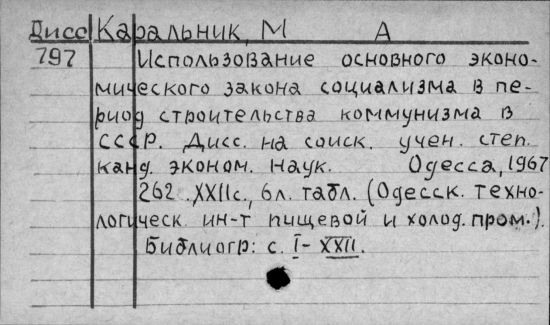 Дисс Каральник, М А
797 Использование основного эконо-
мического закона социализма в пе-
риод строительства коммунизма в
СССР. Дисс. на соиск. учен. степ.
канд. эконом. наук. Одесса, 1967
262 .XXIIс., 6л. табл. (Одесск. техно-
логическ. ин-т пищевой и холод. пром.).
Библиогр: с. I-XXII.